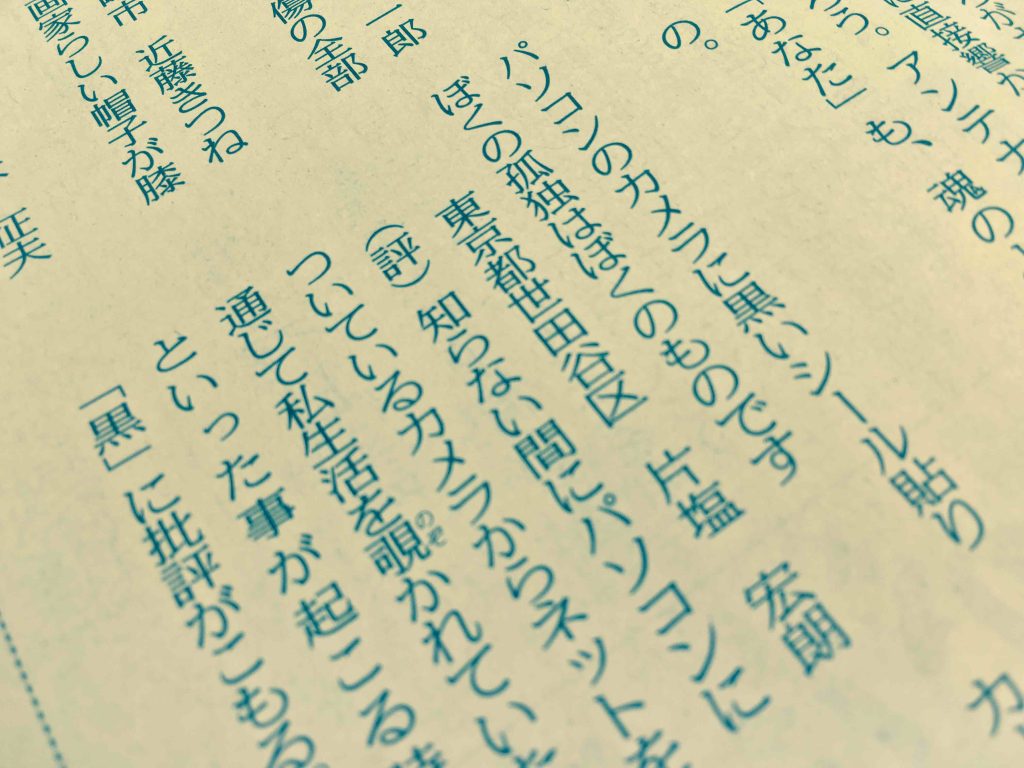 に直接響か
う。アンテナ
「あなた」も、魂の
の。
パソコンのカメラに黒いシール貼り
ぼくの孤独はぼくのものです
東京都世田谷区　片塩　宏朗
（評）知らない間にパソコンに
ついているカメラからネットを
通じて私生活を覗かれてい
のぞ
といった事が起こる
「黒」に批評がこもる
一郎
傷の全部
市　近藤きつね
画家らしい帽子が膝
征夫